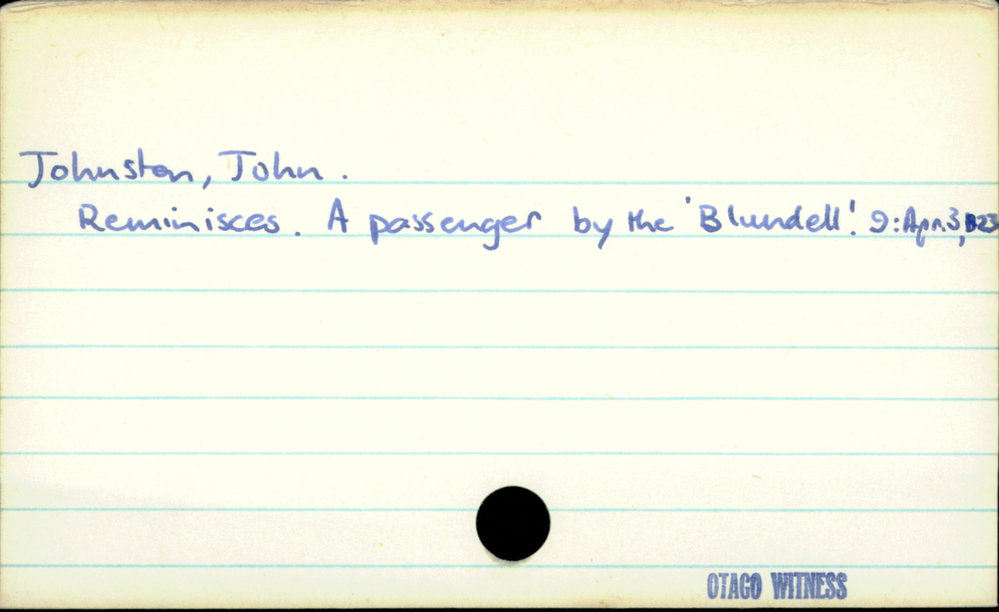 Johnston, John.
Reminisces. A passenger by the 'Blundell'. 9: Apr. 3, 1923
OTAGO WITNESS